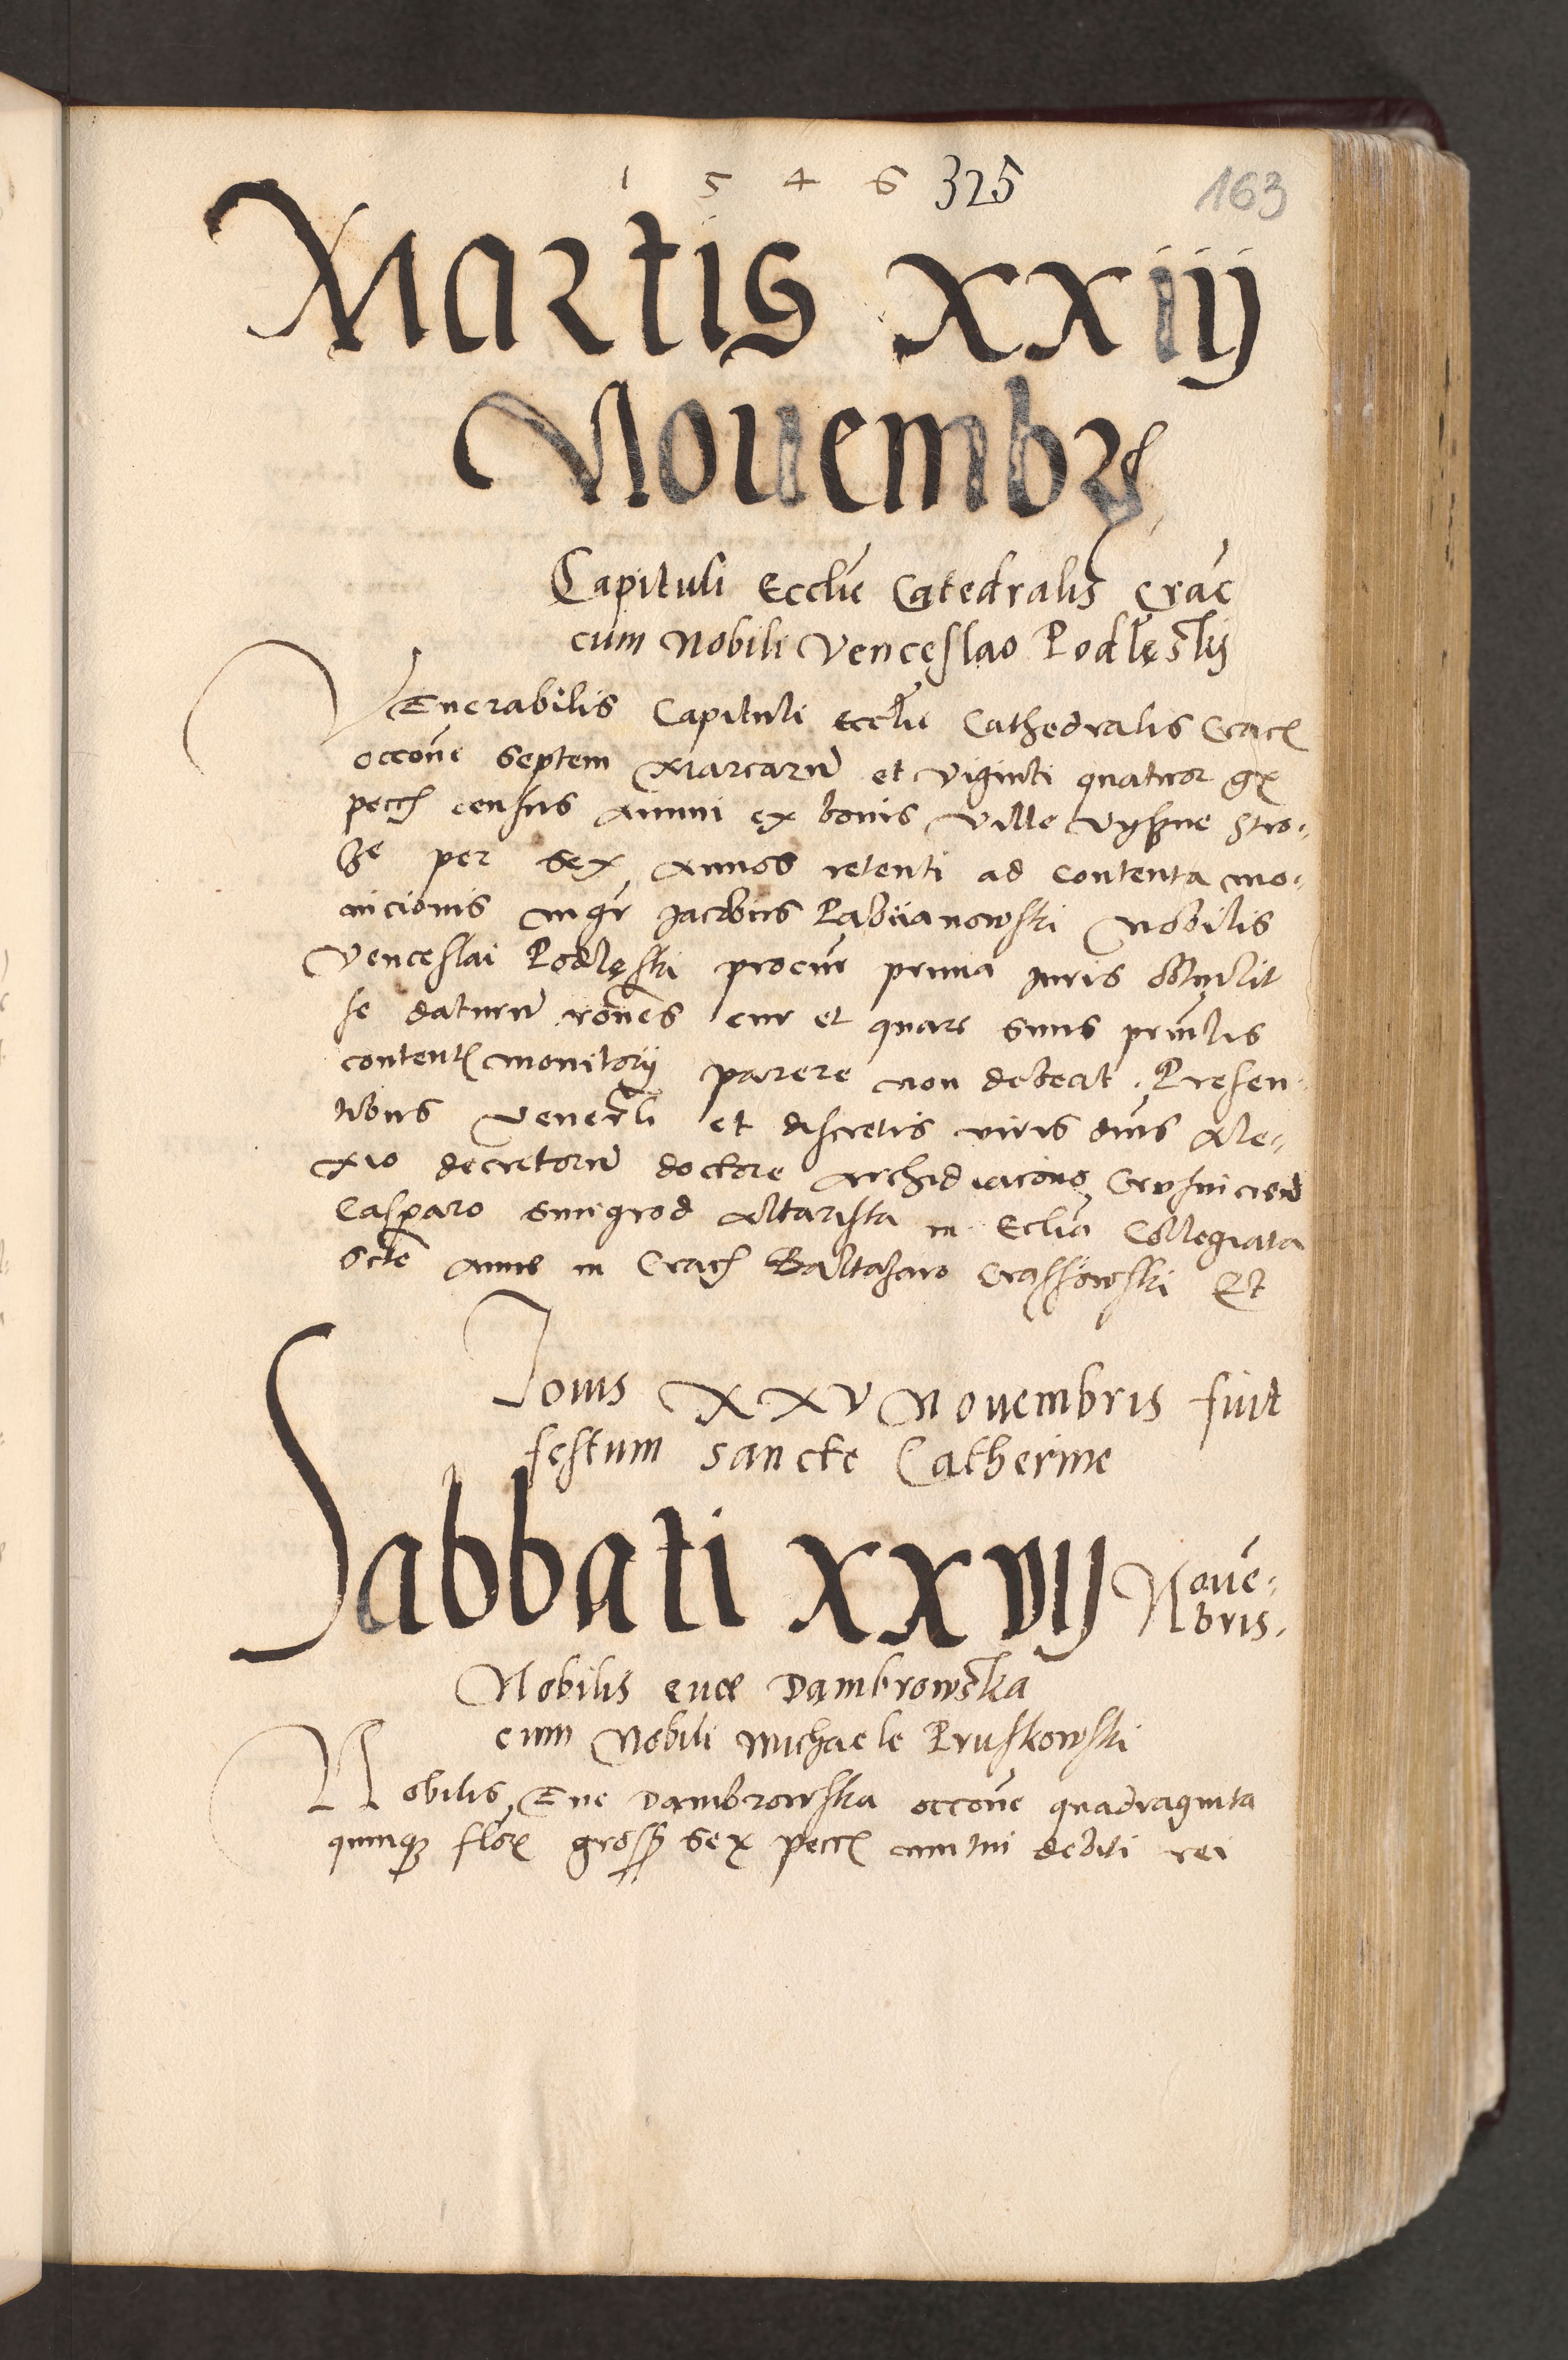 1 5 4 6 325 163
Martis xxiij
Nouembr
Capituli Ecclie Catedralis Crac
cum Nobili Venceslao Podlęsky
Venerabilis Capituli ecclie Cathedralis Crac
occone Septem Marcaru et viginti quatuor gr
pecc census Annui ex bonis Ville Vyssne Stro-
ze per Sex Annos retenti ad contenta mo-
nicionis mgr Jacobus Pabianowski Nobilis
Venceslai Podlęski procur prima Juris obtulit
se daturu rones cur et quare suus prinlis
content monitorij parere non debeat. Presen-
tibus venerli et discretis viris dnis Ale-
xio decretoru doctore Archidiacono
Casparo Smigrod Altarista in Eclia Collegiata
Scte Anne in Crac Baltazaro Crassowski Et
Jouis XXV Nouembris fuit
festum sancte Catherine
Sabbati xxvij Noue-
bris.
Nobilis eue Dambrowska
cum Nobili Michaele Pruskowski
Nobilis Eue Dambrowska occone quadraginta
quinq flor gross sex pecc mutui debiti rei